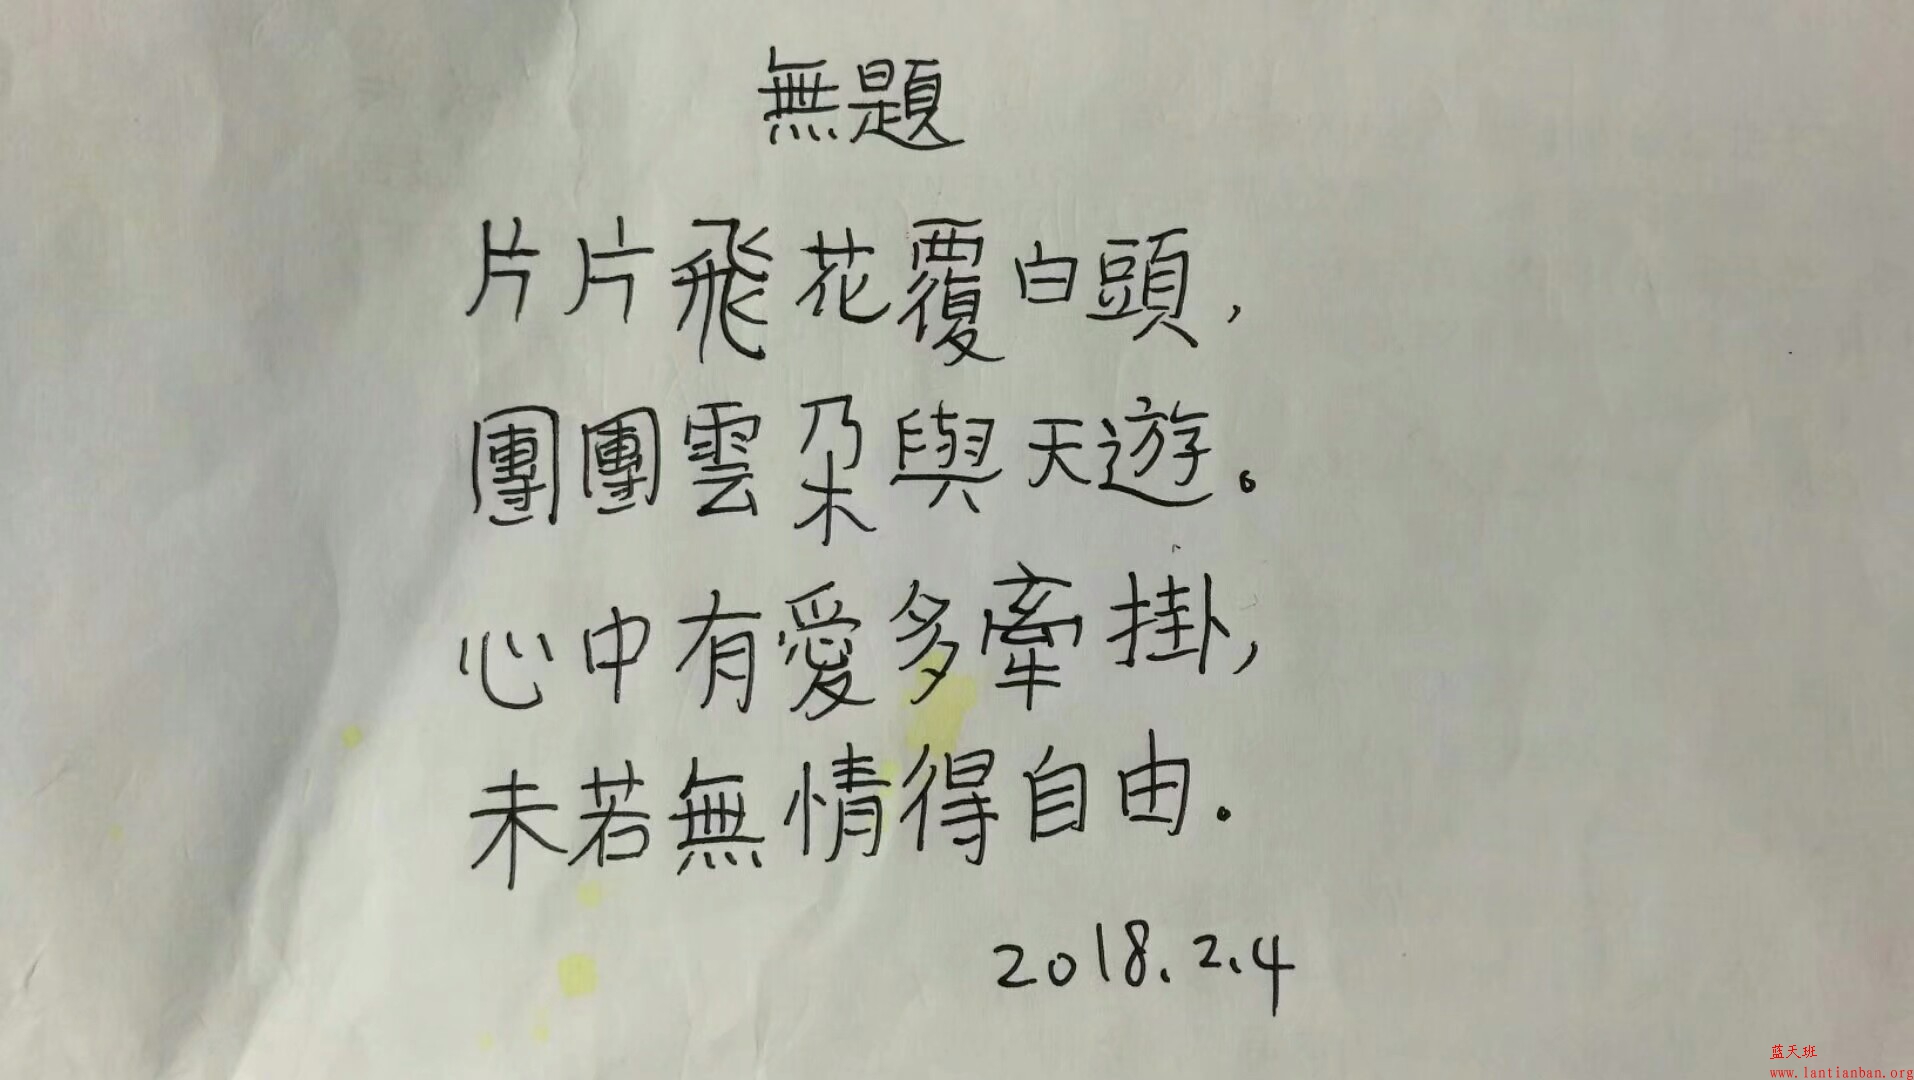 無題
片片飛花覆白頭，
團團雲朵與天遊。
心中有愛多牽掛，
未若無情得自由。
2018.2.4
蓝天班
www.lantianban.org